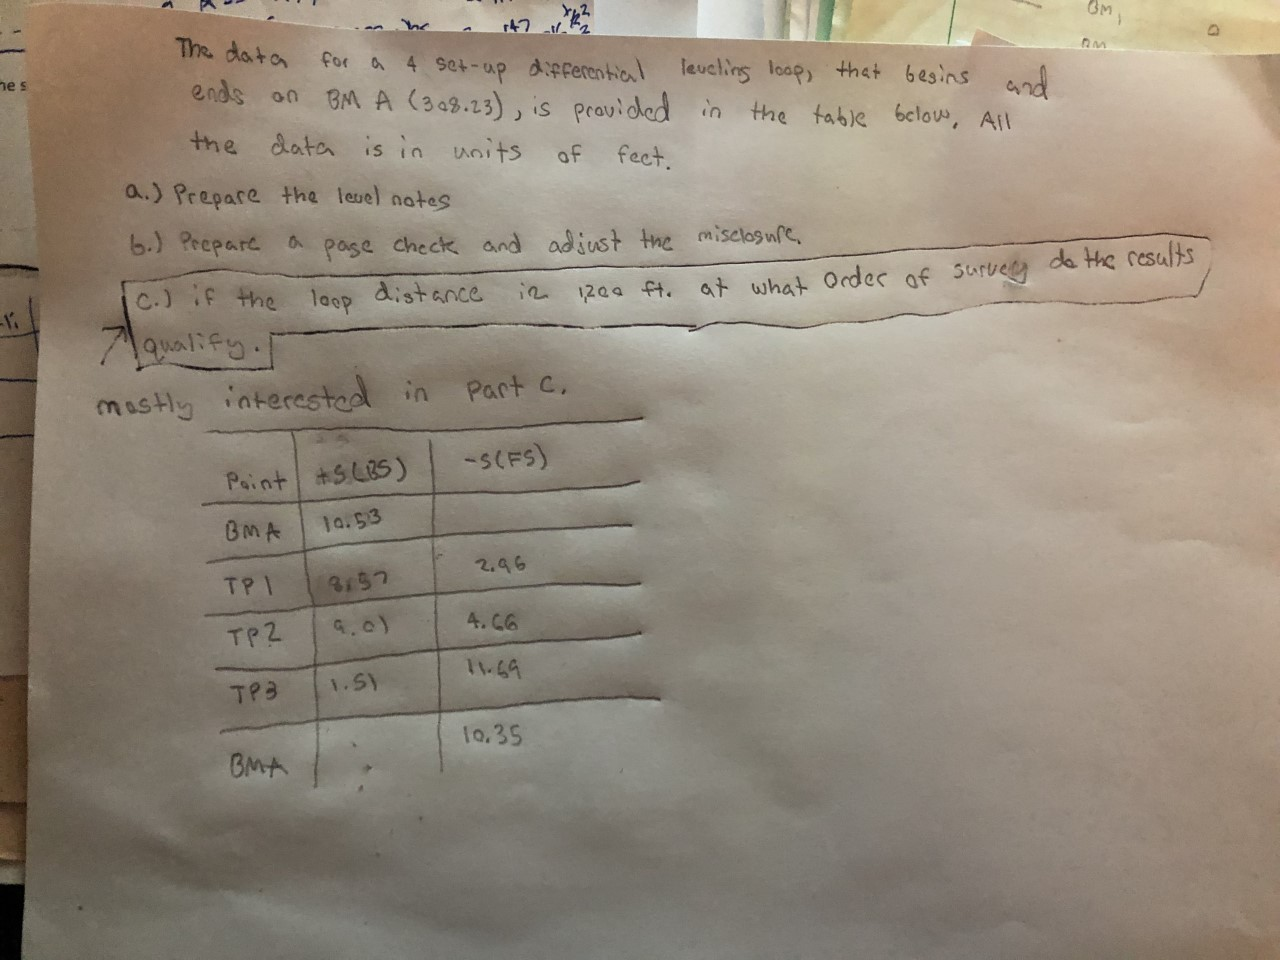 BM1
BM
he s
The data for a 4 set-up differential leveling loop, that begins and
ends on BM A (308.23), is provided in the table below. All
the data is in units of feet.
a.) Prepare the level notes
b.) Prepare a page check and adjust the misclosure.
c.) if the loop distance is 1,200 ft. at what order of survey do the results
qualify.
mostly interested in part C.
Point +S(BS) -S(FS)
BMA 10.53
TP1 8.57 2.96
TP2 9.01 4.66
TP3 1.51 11.69
BMA 10.35